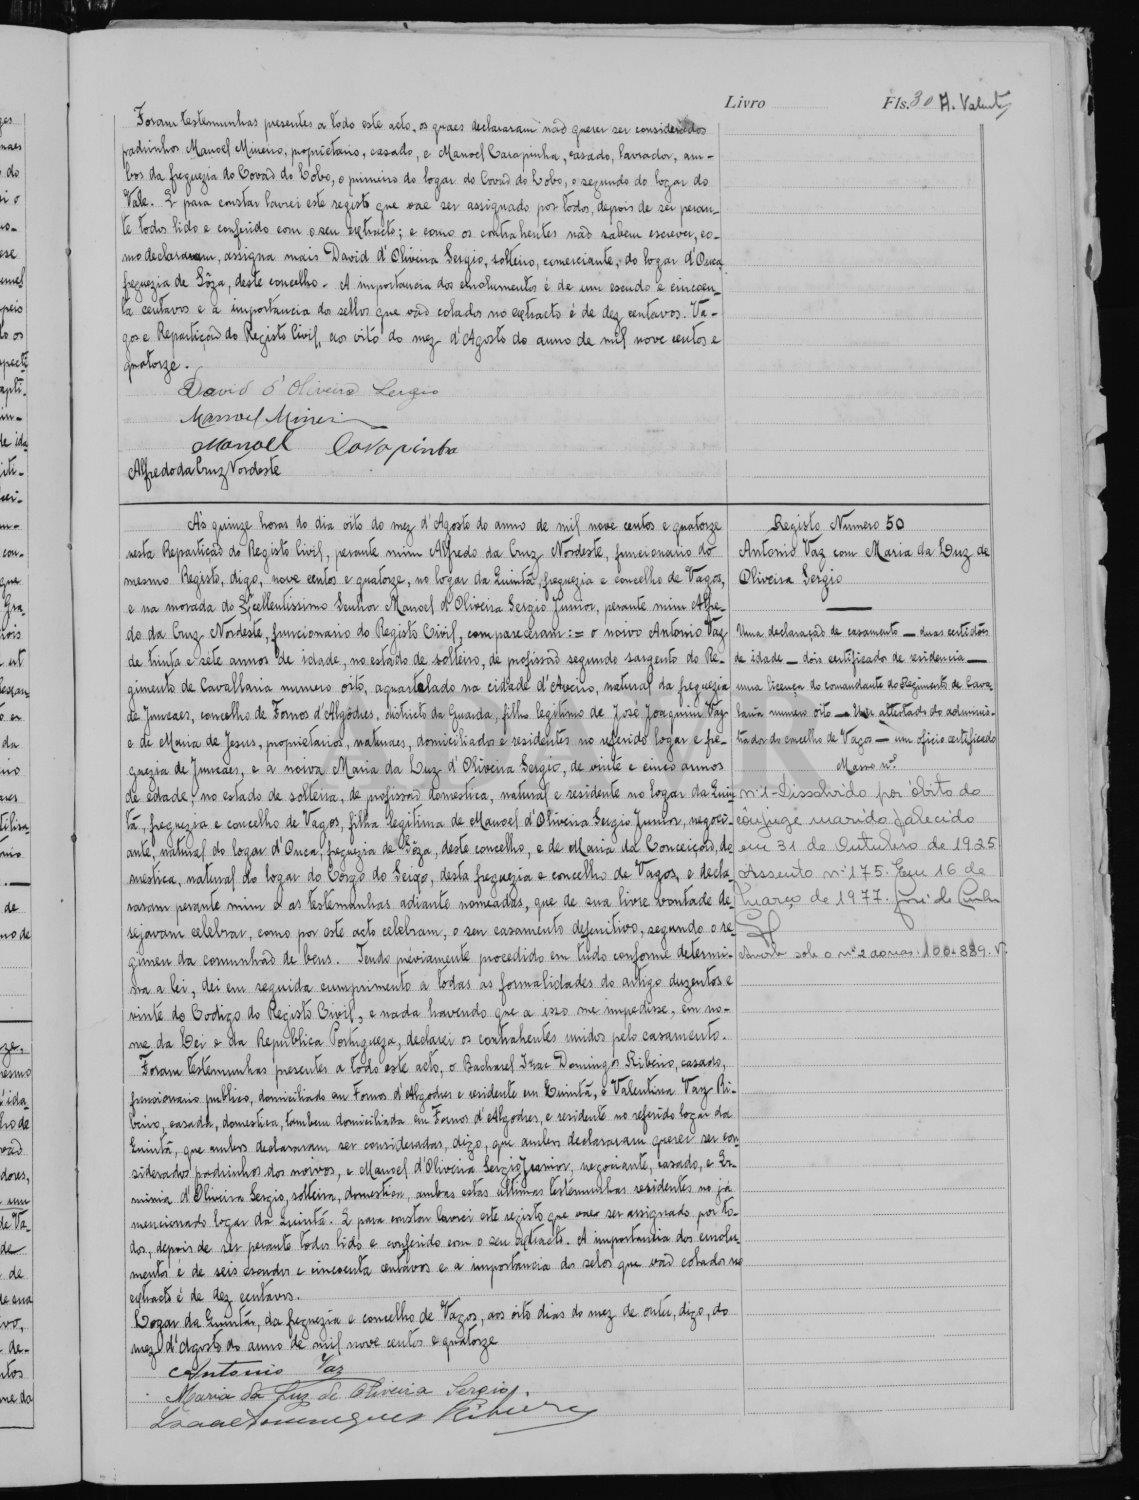 Livro Fls. 30 A. Valente
Foram testemunhas presentes a todo este acto, os quaes declararam não querer ser considerados
padrinhos Manoel Mineiro, proprietario, casado, e Manoel Carapinha, casado, lavrador, am-
bos da freguezia do Covão do Lobo, o primeiro do logar do Covão do Lobo, o segundo do logar do
Vale. E para constar lavrei este registo que vae ser assignado por todos, depois de ser peran-
te todos lido e conferido com o seu extracto; e como os contrahentes não sabem escrever, co-
mo declararam, assigna mais David d'Oliveira Sergio, solteiro, comerciante, do logar d'Ouca
freguezia de Sôza, deste concelho. A importancia dos emolumentos é de um escudo e cincoen-
ta centavos e a importancia dos sellos que vão colados no extracto é de dez centavos. Va-
gos e Repartição do Registo Civil, aos oito do mez d'Agosto do anno de mil nove centos e
quatorze.
David d'Oliveira Sergio
Manoel Mineiro
Manoel Carapinha
Alfredo da Cruz Nordeste
A's quinze horas do dia oito do mez d'Agosto do anno de mil nove centos e quatorze
nesta Repartição do Registo Civil, perante mim Alfredo da Cruz Nordeste, funcionario do
mesmo Registo, digo, nove centos e quatorze, no logar da Quintã, freguezia e concelho de Vagos,
e na morada do Excellentissimo Senhor Manoel d'Oliveira Sergio Junior, perante mim Alfre-
do da Cruz Nordeste, funcionario do Registo Civil, compareceram:= o noivo Antonio Vaz
de trinta e sete annos de idade, no estado de solteiro, de profissão segundo sargento do Re-
gimento de Cavallaria numero oito, aquartelado na cidade d'Aveiro, natural da freguezia
de Juncaes, concelho de Fornos d'Algôdres, districto da Guarda, filho legitimo de José Joaquim Vaz
e de Maria de Jesus, proprietarios, naturaes, domiciliados e residentes no referido logar e fre-
guezia de Juncaes, e a noiva Maria da Luz d'Oliveira Sergio, de vinte e cinco annos
de edade, no estado de solteira, de profissão domestica, natural e residente no logar da Quin-
tã, freguezia e concelho de Vagos, filha legitima de Manoel d'Oliveira Sergio Junior, negoci-
ante, natural do logar d'Ouca, freguezia de Sôza, deste concelho, e de Maria da Conceição, do
mestica, natural do logar do Côrgo do Seixo, desta freguezia e concelho de Vagos, e decla
raram perante mim e as testemunhas adiante nomeadas, que de sua livre vontade de-
sejavam celebrar, como por este acto celebram, o seu casamento defenitivo, segundo o re-
gimen da comunhão de bens. Tendo préviamente procedido em tudo conforme determi-
na a lei, dei em seguida cumprimento a todas as formalidades do artigo duzentos e
vinte do Codigo do Registo Civil, e nada havendo que a isso me impedisse, em no-
me da Lei e da Republica Portugueza, declarei os contrahentes unidos pelo casamento.
Foram testemunhas presentes a todo este acto, o Bacharel Izac Domingos Ribeiro, casado,
funcionario publico, domiciliado em Fornos d'Algodres e residente em Quintã, e Valentina Vaz Ri-
beiro, casada, domestica, tambem domiciliada em Fornos d'Algodres, e residente no referido logar da
Quintã, que ambos declararam ser consideradas, digo, que ambos declararam querer ser con
siderados padrinhos dos noivos, e Manoel d'Oliveira Sergio Junior, negociante, casado, e Er-
minia d'Oliveira Sergio, solteira, domestica, ambas estas ultimas testemunhas residentes no já
mencionado logar da Quintã. E para constar lavrei este registo que vae ser assignado por to-
dos, depois de ser perante todos lido e conferido com o seu extracto. A importancia dos emolu-
mentos é de seis escudos e cincoenta centavos e a importancia do selos que vão colados no
extracto é de dez centavos.
Logar da Quintã, da freguezia e concelho de Vagos, aos oito dias do mez de outu, digo, do
mez d'Agosto do anno de mil nove centos e quatorze
Antonio Vaz
Maria da Luz de Oliveira Sergio.
Isaac Domingues Ribeiro
Registo Numero 50
Antonio Vaz com Maria da Luz de
Oliveira Sergio
Uma declaração de casamento — duas certidões
de idade — dois certificado de residencia —
uma licença do comandante do Regimento de Cava-
laria numero oito — Um attestado do adminis-
trador do concelho de Vagos — um oficio certificado
Masso nº
Nº 1 - Dissolvido por óbito do
cônjuge marido falecido
em 31 de Outubro de 1925
Assento nº 175. Em 16 de
Março de 1977.
sob o nº 2